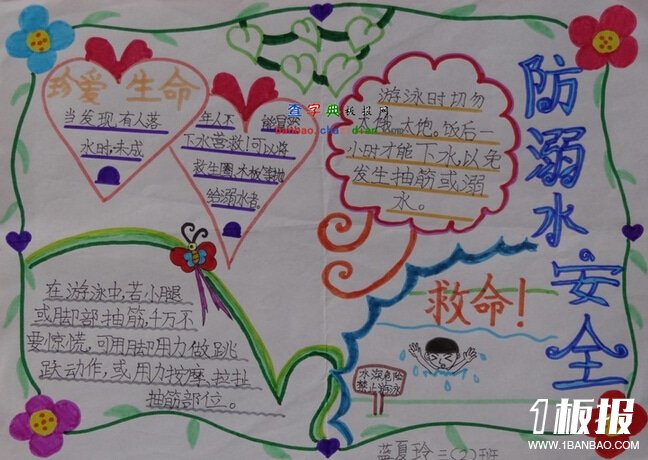 珍爱生命
当发现有人落
水时未成
年人不
下水营救!可以将
救生圈、木板等抛
给溺水者。
查字典板报网
游泳时切勿
太饿、太饱。饭后一
小时才能下水,以免
发生抽筋或溺
水。
防溺水安全
在游泳中,若小腿
或脚部抽筋,千万不
要惊慌,可用脚用力做跳
跃动作,或用力按摩、拉扯
抽筋部位。
救命!
水深危险
禁止游泳
蓝夏玲 三(2)班
1板报
WWW.1BANBAO.COM